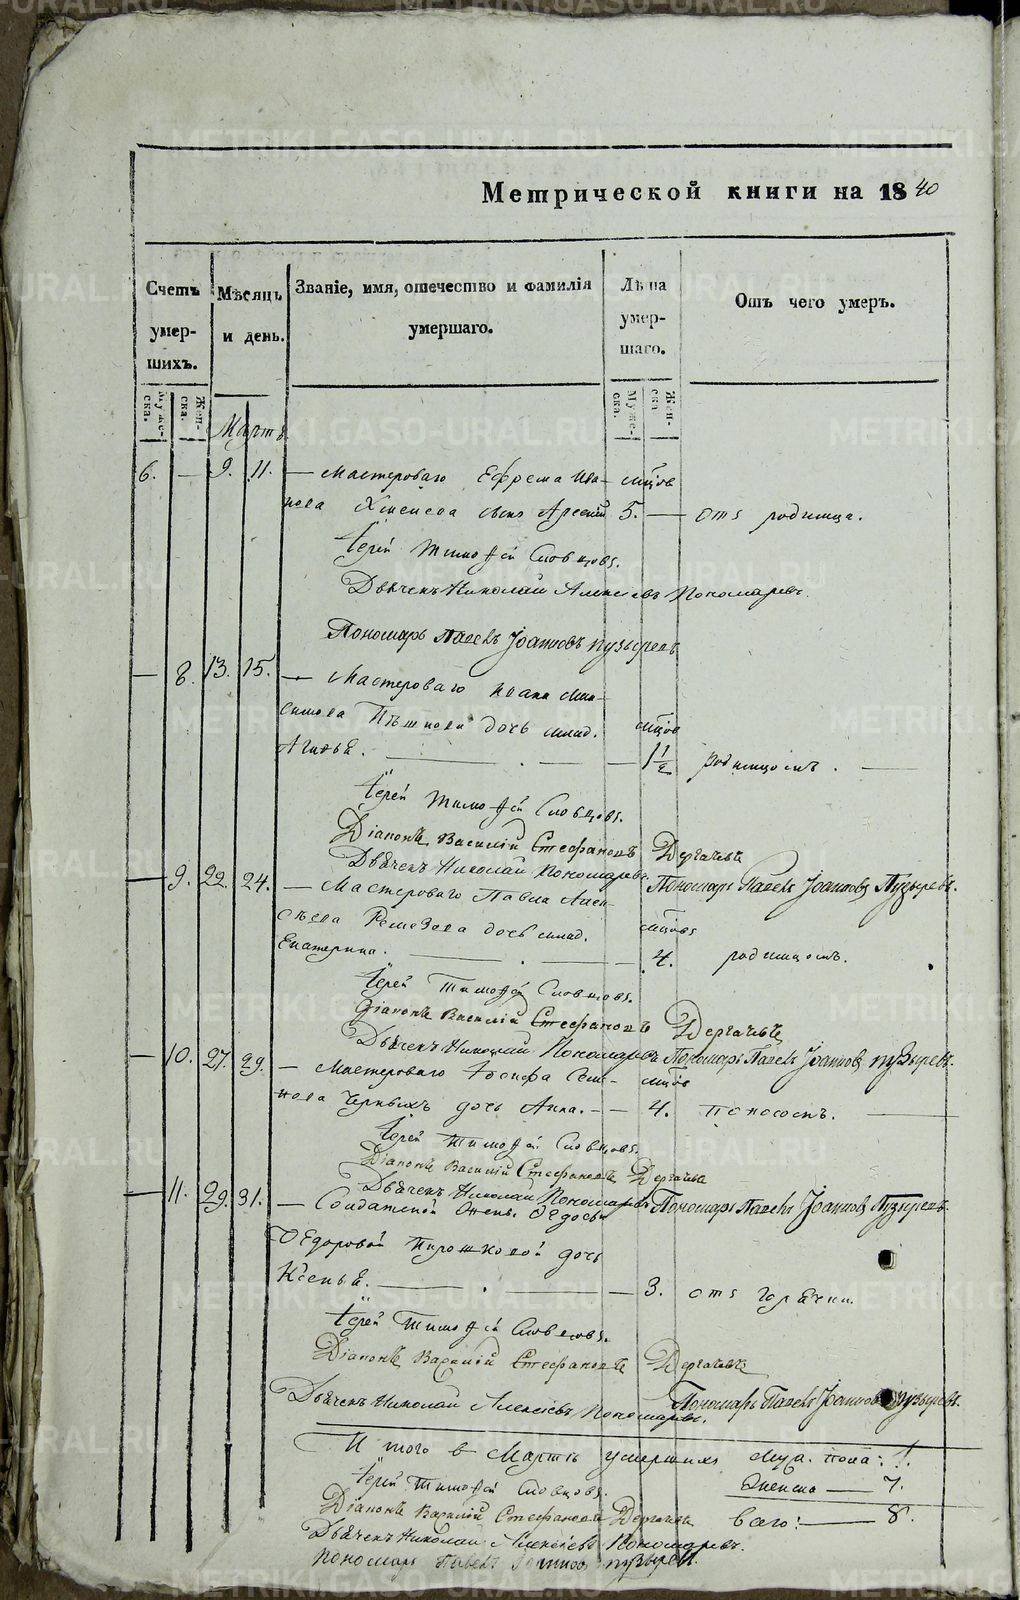 Метрической книги на 1840
Счетъ умер-шихъ.
Мѣсяцъ и день.
Званіе, имя, отечество и фамилія умершаго.
Лѣта умер-шаго.
Отъ чего умеръ.
Муже-ска.
Жен-ска.
Муже-ска.
Жен-ска
Мартъ
6. — 9. 11. — Мастероваго Ефрема Ива- мцов
сынъ Арсений 5. — отъ родимца.
Іерей Тимофей Словцовъ.
Дьячекъ Николай Алексѣевъ Пономаревъ.
Пономарь Павелъ Іоанновъ Пузыревъ
— 8. 13. 15. — Мастероваго Ивана Мак-
симова дочь млад. мцов
— 1 1/2 родимцомъ. —
Іерей Тимофей Словцовъ.
Діаконъ Василій Стефановъ Дергачевъ
Дьячекъ Николай Пономаревъ. Пономарь Павелъ Іоанновъ Пузыревъ.
— 9. 22. 24. — Мастероваго Павла Алек-
сѣева Ремезова дочь млад. мцовъ
Екатерина. — 4. родимцомъ.
Іерей Тимофей Словцовъ.
Діаконъ Василій Стефановъ Дергачевъ
Дьячекъ Николай Пономаревъ Пономарь Павелъ Іоанновъ Пузыревъ.
— 10. 27. 29. — Мастероваго Іосифа Семе- мцов
нова Черныхъ дочь Анна. — 4. поносомъ. —
Іерей Тимофей Словцовъ.
Діаконъ Василій Стефановъ Дергачевъ
Дьячекъ Николай Пономаревъ Пономарь Павелъ Іоанновъ Пузыревъ.
— 11. 29. 31. — Солдатской жены Федосьи
Федоровой Пирожковой дочь
Ксенья. — 3. отъ горячки.
Іерей Тимофей Словцовъ.
Діаконъ Василій Стефановъ Дергачевъ
Дьячекъ Николай Алексѣевъ Пономаревъ. Пономарь Павелъ Іоанновъ Пузыревъ.
Итого в Мартѣ умершихъ муж. пола: 1.
Іерей Тимофей Словцовъ. Женска — 7.
Діаконъ Василій Стефановъ Дергачевъ Всего: — 8.
Дьячекъ Николай Алексѣевъ Пономаревъ.
Пономарь Павелъ Іоанновъ Пузыревъ.
METRIKI.GASO-URAL.RU